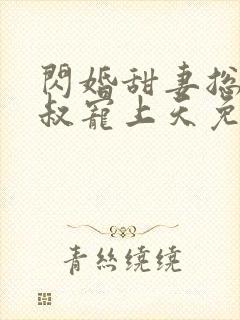 閃婚甜妻總
叔寵上天免
青絲繞繞